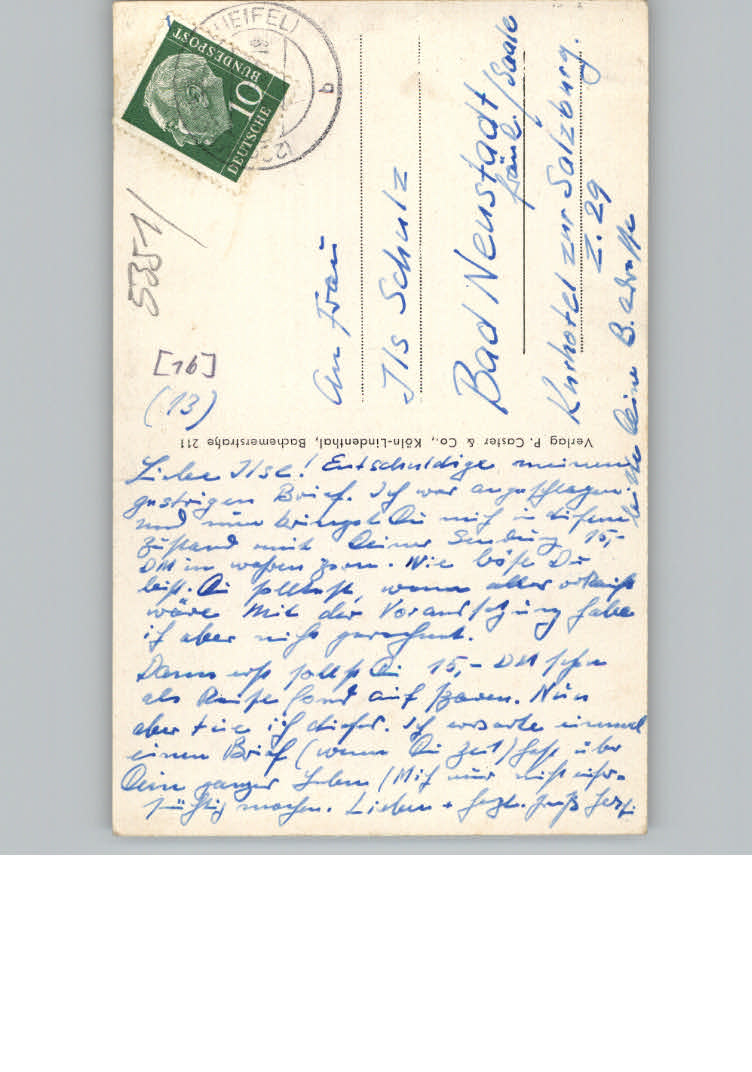 (EIFEL)
DEUTSCHE
BUNDESPOST
10
b
5351/
[16]
(13)
An Frau
Ils Schulz
Bad Neustadt
fränk./Saale
Kurhotel zur Salzburg.
Z. 29
bitte Deine B. adresse
Verlag P. Caster & Co., Köln-Lindenthal, Bachemerstraße 211
Liebe Ilse! Entschuldige meinen
gestrigen Brief. Ich war angeschlagen
und nun bringst Du mich in diesem
Zustand mit Deiner Sendung 15,-
DM in wahren Zorn. Wie böse Du
bist. Du solltest, wenn alles
wäre Mit der Voraussetzung habe
ich aber nicht gerechnet.
Dann erst sollst Du 15,- DM
als Reise fond auf sparen. Nun
aber tue ich dieses. Ich erwarte einmal
einen Brief (wenn Du Zeit) hast über
Dein ganzes Leben (Mich nur nicht
machen. Lieben + herzl. Gruß